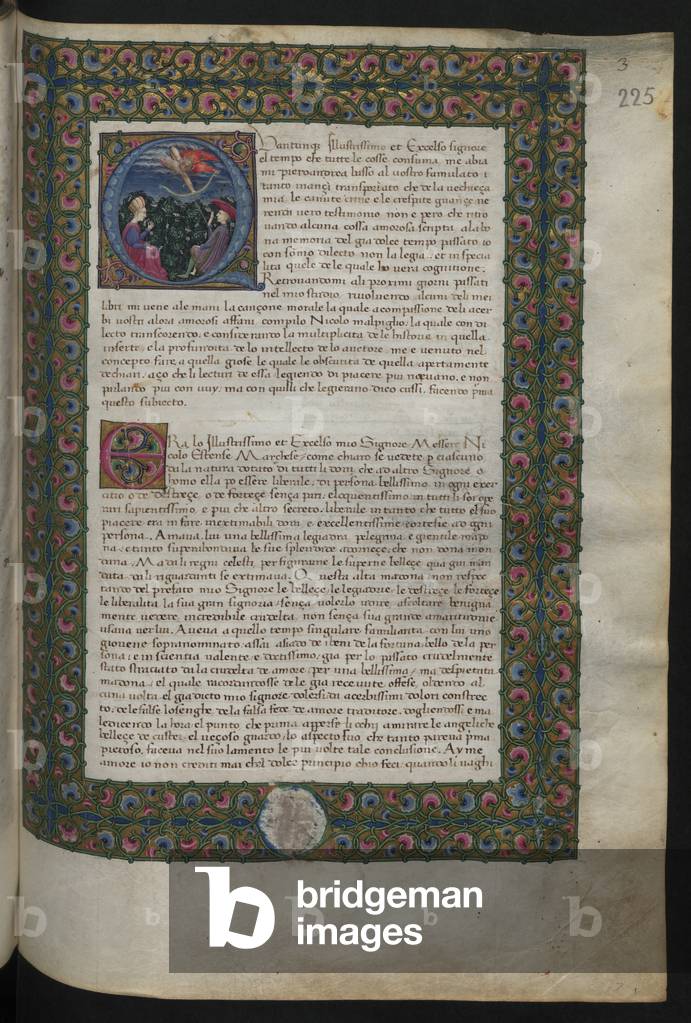 3
225
Quantunqz Illustrissimo et Excelso signore
el tempo che tutte le cosse consuma, me abia
mi pieroandrea basso al vostro famulato i
tanto mançi transportato che de la vechieça
mia, le canute cime e le crespate guançe ne
rendi vero testimonio non e pero che ritro
vando alcuna cossa amorosa scripta a la bo
na memoria del gia dolce tempo passato, io
con somo dilecto non la legia: et in specia
lita quele de le quale ho vera cognitione.
Retrovandomi ali proximi giorni passati
nel mio studio, rivolvendo alcuni deli mei
libri mi vene ale mani la cançone morale la quale a compassione deli acer
bi vostri alora amorosi affani compilo Nicolo malpiglio. la quale con di
lecto transcorendo, e considerando la multiplicita dele historie in quella
inserte, e la profundita de lo intellecto de lo auctore, me e venuto nel
concepto fare a quella giose, le quale le obscurita de quella apertamente
dechiari. aço che li lecturi de essa legiendo di piacere piu recevano, e non
parlando piu con vuy, ma con quilli che legierano dico cussi, facendo prima
questo subiecto.
ERa lo Illustrissimo et Excelso mio Signore Messere Ni
colo Estense Marchese, come chiaro se vedete per ciascuno
da la natura dotato di tutti li doni che ad altro Signore o
homo ella po essere liberale, di persona bellissimo, in ogni exer
citio o de destreçe, o de forteçe sença pari, eloquentissimo, in tutti li soi ope
rari sapientissimo, e piu che altro secreto, liberale in tanto che tutto el suo
piacere era in fare inextimabili doni, e excellentissime cortesie ad ogni
persona. Amava lui una bellissima legiadra pelegrina e gientile mado
na, e tanto superabondava le sue splendide adorneçe, che non dona mon
dana, Ma da li regni celesti, per figurarne le superne belleçe qua giu man
data, da li riguardanti se extimava. Questa alta madona, non respec
tando del prefato mio Signore le belleçe, le legiadrie, le destreçe, le forteçe
le liberalita la sua gran signoria, sença volerlo vedere, ascoltare, benigna
mente vedere, incredibile crudelta, non sença sua grande amaritudine
usava ver lui. Aveva a quello tempo singulare familiarita con lui uno
giovene sopranominato, assai abiado de i beni de la fortuna, bello de la per
sona, e in scientia valente e doctissimo, gia per lo passato crudelmente
stato stratiato da la crudelta de amore, per una bellissima, ma despietata
madona, el quale racordandosse de le gia recevute offese, oldendo al
cuna volta el gia dicto mio signore dolersi di acerbissimi dolori constrec
to, de le false losenghe, de la falsa fede de amore traditore, dogliendossi e ma
ledicendo la hora, e il puncto che prima apperse li ochi a mirare le angeliche
belleçe de custei, el veçoso guardo, lo aspecto suo che tanto pareva prima
pietoso, faceva nel suo lamento le piu volte tale conclusione. Ay me
amore io non creditti mai che l dolce principio chio feci, quando li vaghi
bridgeman
images